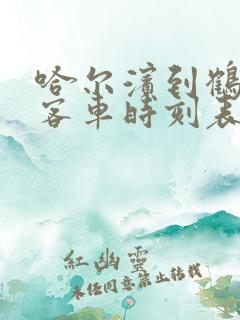 哈尔滨到鹤
客车时刻表
紅幽靈
未经同意禁止转载